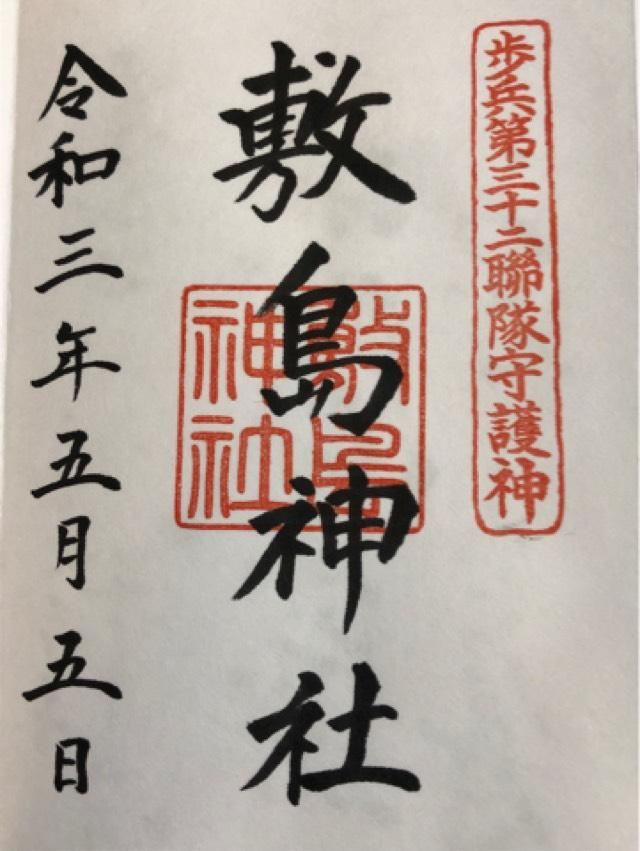 歩兵第三十二聯隊守護神
敷島神社
敷島神社
令和三年五月五日